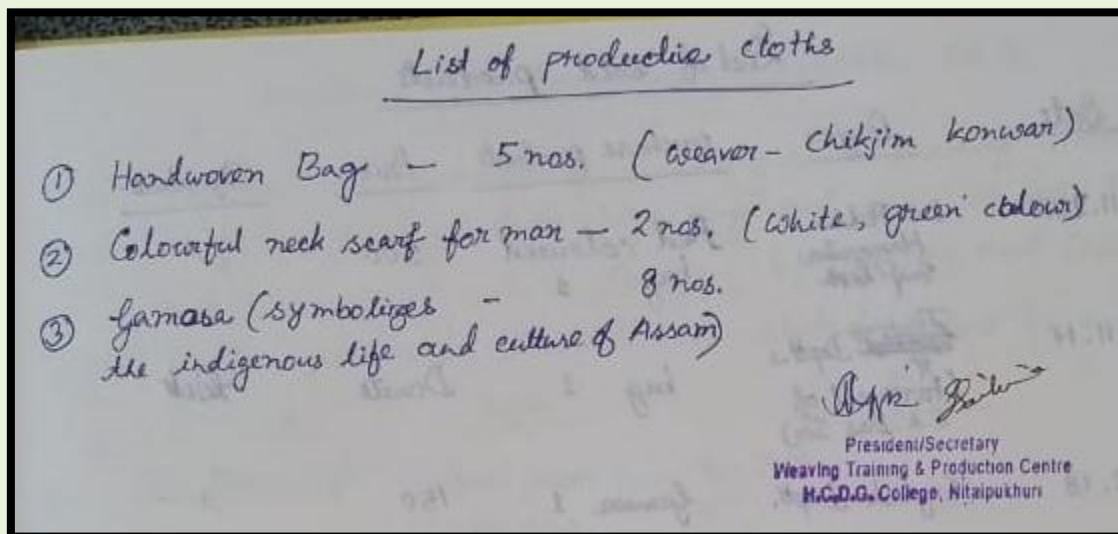 List of productive cloths
① Handwoven Bag — 5 nos. (weaver - Chikjim Konwar)
② Colourful neck scarf for man — 2 nos. (White, green colour)
③ Gamasa (symbolizes - 8 nos.
the indigenous life and culture of Assam)
President/Secretary
Weaving Training & Production Centre
H.C.D.G. College, Nitaipukhuri